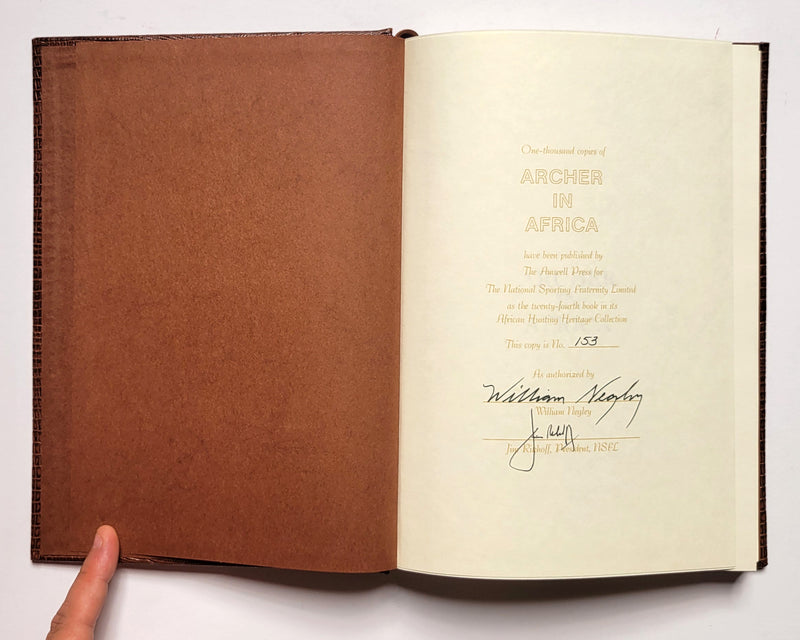 One-thousand copies of
ARCHER
IN
AFRICA
have been published by
The Amwell Press for
The National Sporting Fraternity Limited
as the twenty-fourth book in its
African Hunting Heritage Collection
This copy is No. 153
As authorized by
William Negley
William Negley
Jim Rikhoff, President, NSFL